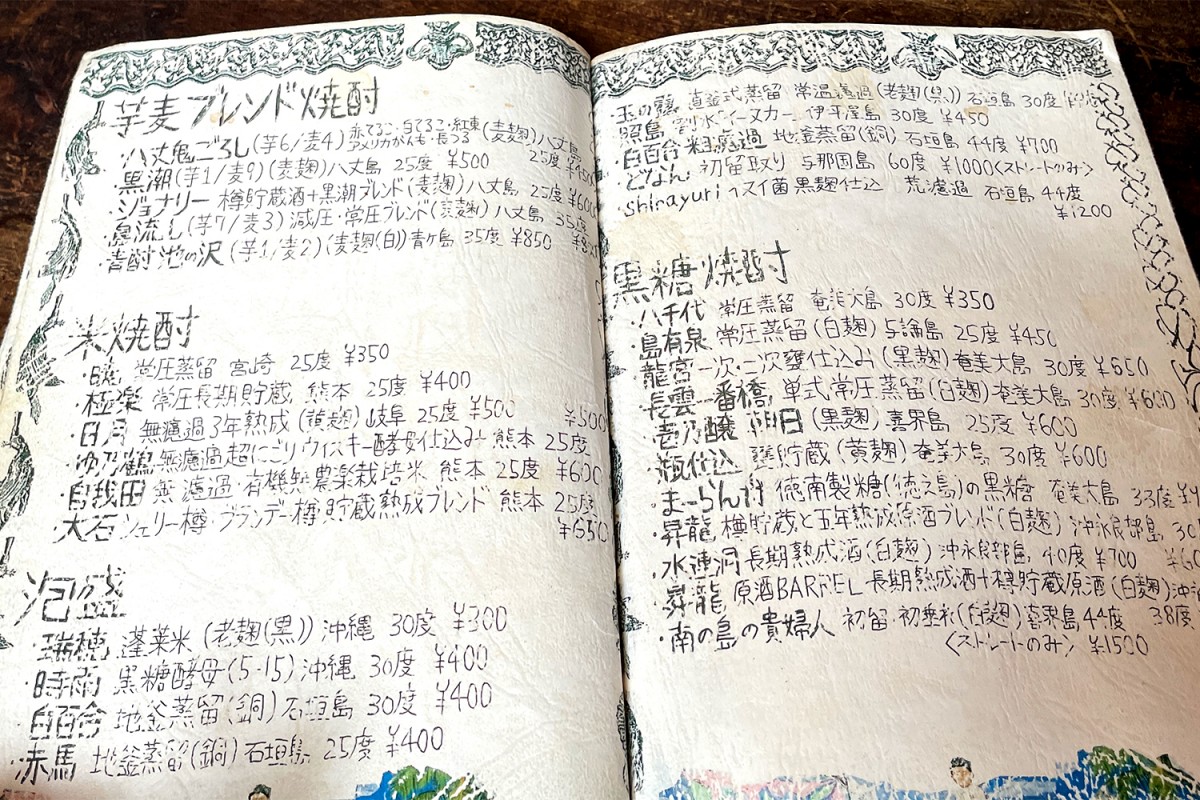 芋麦ブレンド焼酎
・八丈鬼ごろし(芋6/麦4) 赤てるこ・白てるこ・紅東 アメリカがんも・長つる (麦麹) 八丈島 25度 ¥450
・黒潮(芋1/麦9)(麦麹)八丈島 25度 ¥500
・ジョナリー 樽貯蔵酒+黒潮ブレンド(麦麹)八丈島 25度 ¥600
・島流し(芋7/麦3)減圧・常圧ブレンド(麦麹)八丈島 35度
・青酎池の沢(芋1/麦2)(麦麹(白))青ヶ島 35度 ¥850
米焼酎
・暁 常圧蒸留 宮崎 25度 ¥350
・極楽 常圧長期貯蔵 熊本 25度 ¥400
・日月 無濾過3年熟成(黄麹)岐阜 25度 ¥500
・沖乃鶴 無濾過超にごりウイスキー酵母仕込み 熊本 25度 ¥500
・自我田 無濾過・有機無農薬栽培米 熊本 25度 ¥600
・大石 シェリー樽・ブランデー樽貯蔵熟成ブレンド 熊本 25度 ¥650
泡盛
・瑞穂 蓬莱米(老麹(黒))沖縄 30度 ¥300
・時雨 黒糖酵母(5-15)沖縄 30度 ¥400
・白百合 地釜蒸留(銅)石垣島 30度 ¥400
・赤馬 地釜蒸留(銅)石垣島 25度 ¥400
・玉の露 直釜式蒸留 常温濾過(老麹(黒))石垣島 30度
・照島 割水“イーヌカー” 伊平屋島 30度 ¥450
・白百合 粗濾過 地釜蒸留(銅)石垣島 44度 ¥700
・どなん 初留取り 与那国島 60度 ¥1000<ストレートのみ>
・shirayuri イヌイ菌黒麹仕込 荒濾過 石垣島 44度
¥1200
黒糖焼酎
・八千代 常圧蒸留 奄美大島 30度 ¥350
・島有泉 常圧蒸留(白麹)与論島 25度 ¥450
・龍宮 一次・二次甕仕込み(黒麹)奄美大島 30度 ¥650
・長雲一番橋 単式常圧蒸留(白麹)奄美大島 30度 ¥600
・壱乃醸 朝日(黒麹)喜界島 25度 ¥600
・瓶仕込 甕貯蔵(黄麹)奄美大島 30度 ¥600
・まーらん舟 徳南製糖(徳之島)の黒糖 奄美大島 33度
・昇龍 樽貯蔵と五年熟成原酒ブレンド(白麹)沖永良部島 30
・水連洞 長期熟成酒(白麹)沖永良部島 40度 ¥700
・昇龍 原酒BARREL 長期熟成酒+樽貯蔵原酒(白麹)沖
・南の島の貴婦人 初留・初垂れ(白麹)喜界島 44度 38度
<ストレートのみ> ¥1500